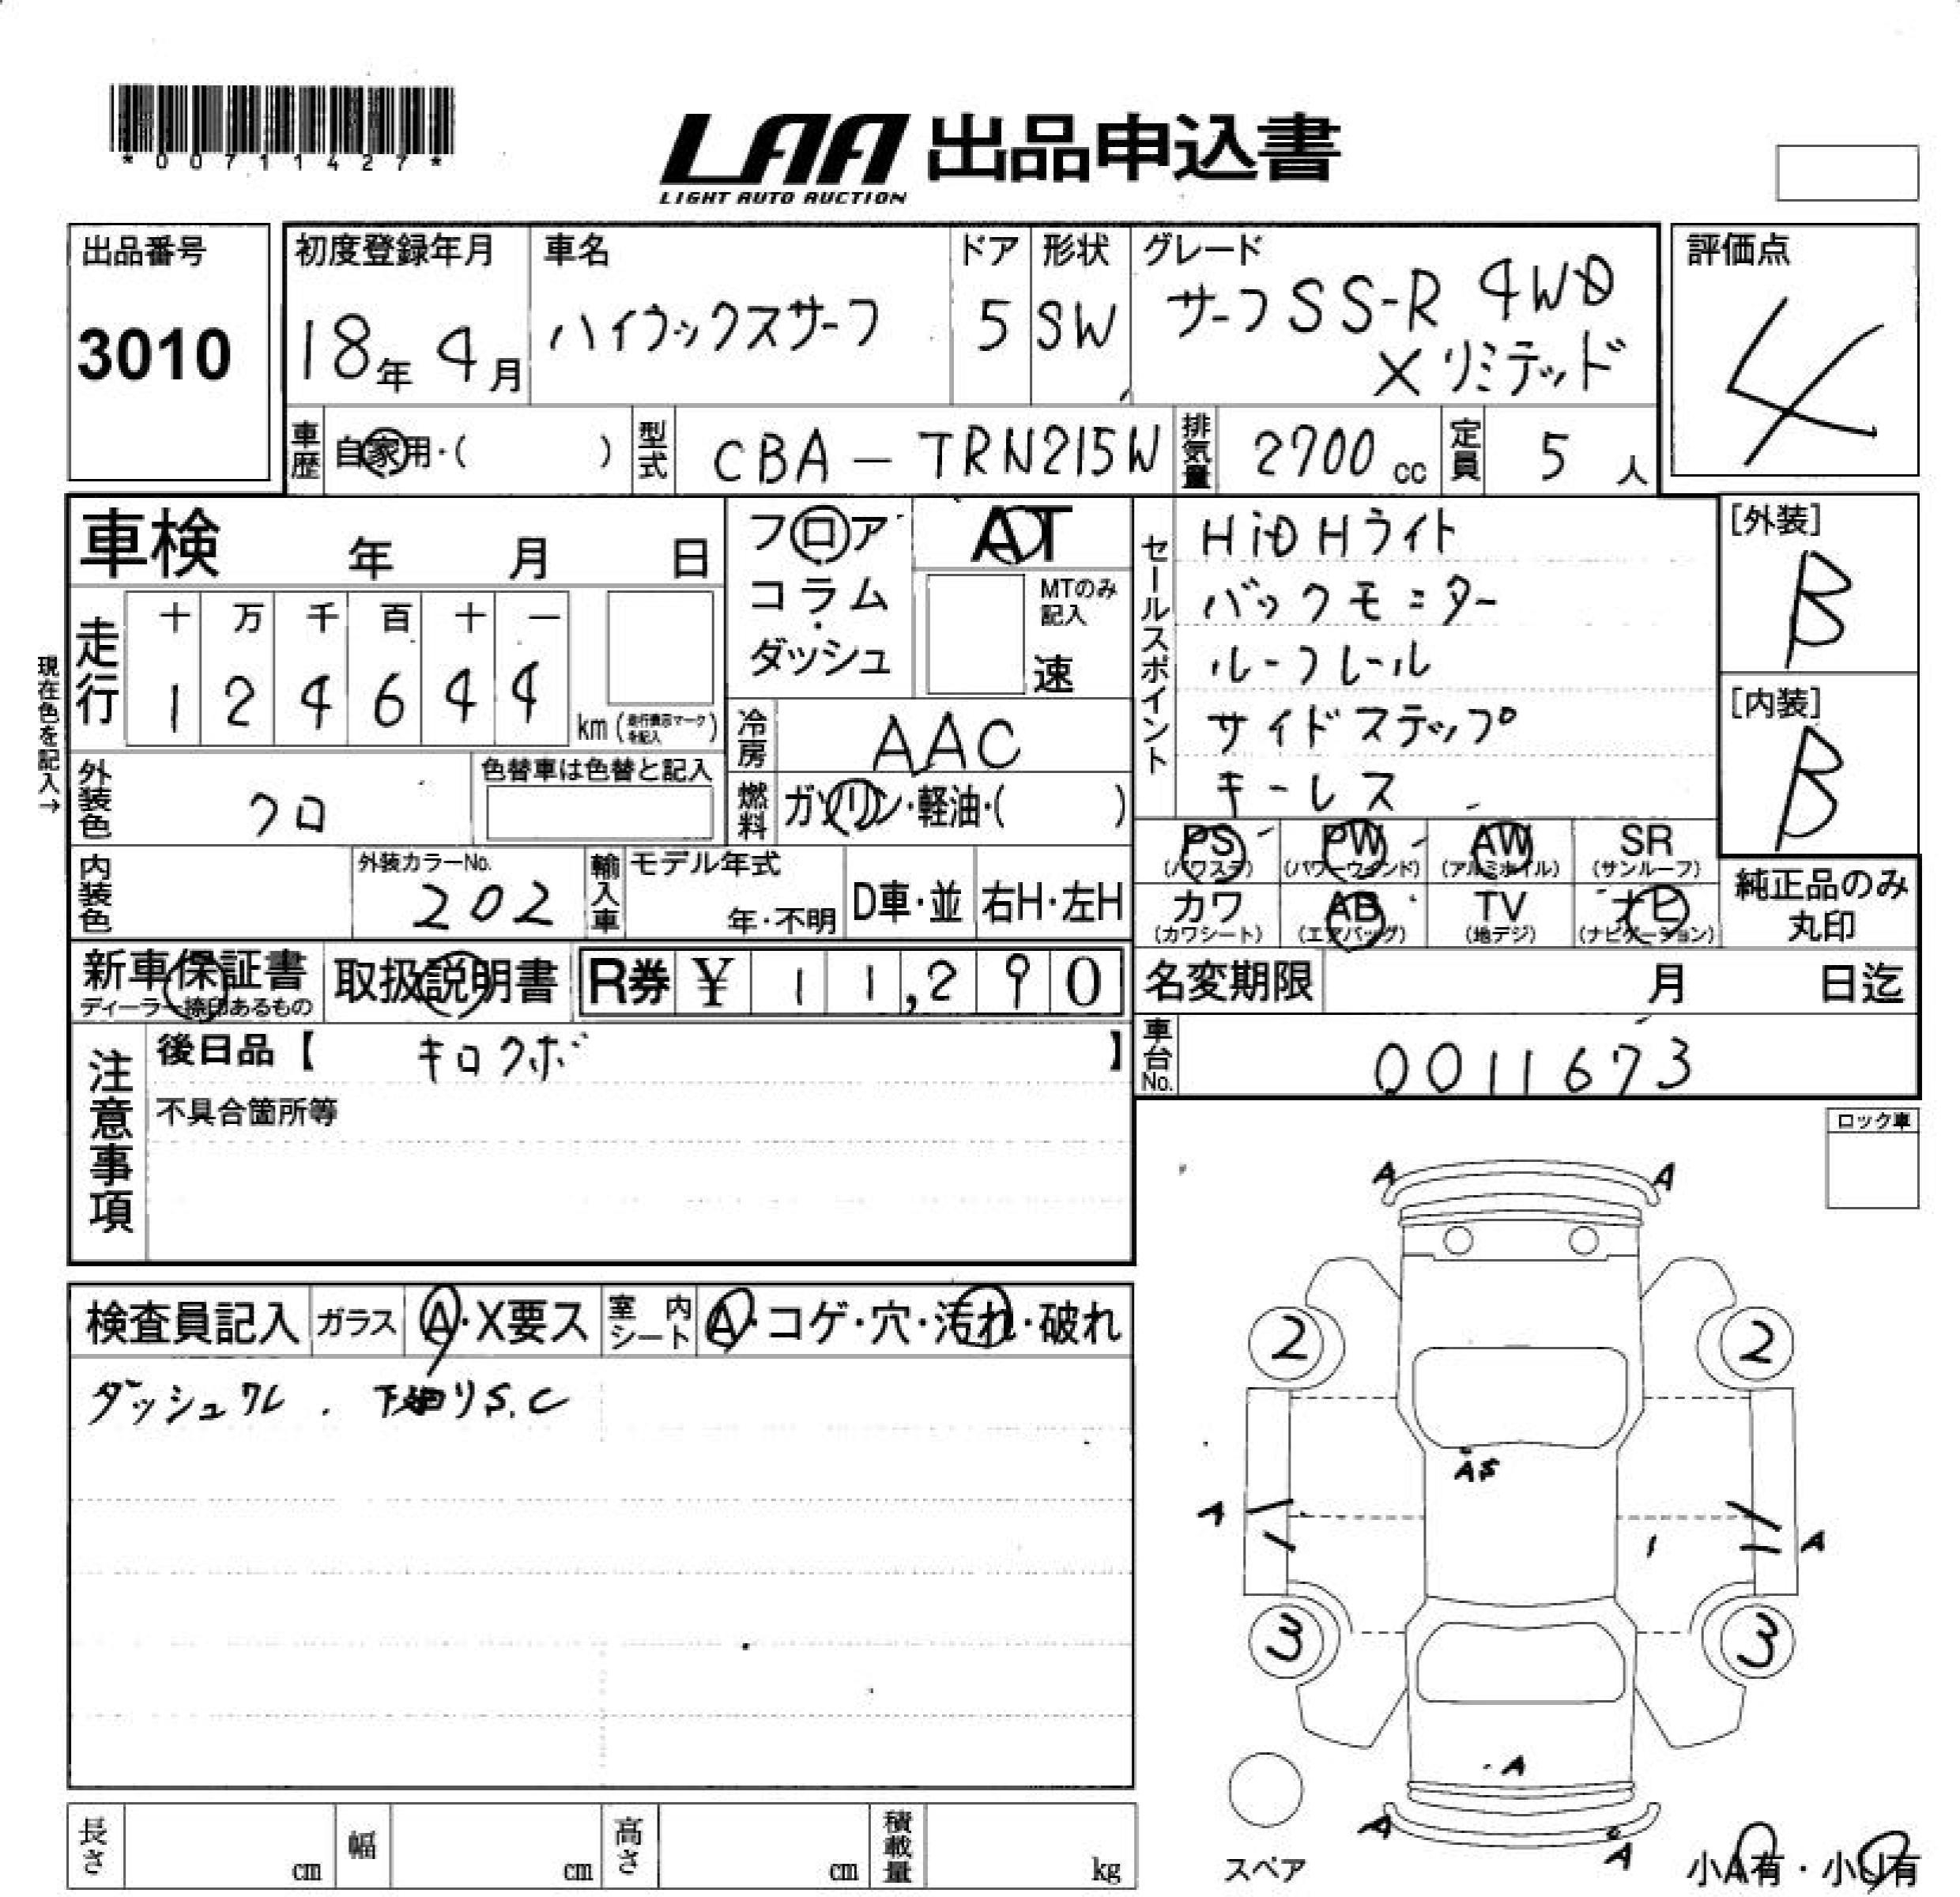 *00711427*
LAA 出品申込書
LIGHT AUTO AUCTION
出品番号
3010
初度登録年月
18年 4月
車名
ハイラックスサーフ
ドア
5
形状
SW
グレード
サーフSS-R 4WD
Xリミテッド
評価点
4
車歴 自家用・( )
型式 CBA-TRN215W
排気量 2700 cc
定員 5 人
車検 年 月 日
フロア
コラム
ダッシュ
AT
MTのみ記入
速
セールスポイント
HiDHライト
バックモニター
ルーフレール
サイドステップ
キーレス
[外装]
B
[内装]
B
現在色を記入→
走行
十 万 千 百 十 一
1 2 4 6 4 4
km (走行表示マークを記入)
冷房 AAC
燃料 ガソリン・軽油・( )
外装色 クロ
色替車は色替と記入
内装色
外装カラーNo.
202
輸入車
モデル年式
年・不明
D車・並
右H・左H
PS (パワステ)
PW (パワーウィンド)
AW (アルミホイル)
SR (サンルーフ)
カワ (カワシート)
AB (エアバッグ)
TV (地デジ)
ナビ (ナビゲーション)
純正品のみ
丸印
新車保証書
ディーラー捺印あるもの
取扱説明書
R券 ¥ 11,290
名変期限 月 日迄
車台No. 0011673
注意事項
後日品【 キロクボ 】
不具合箇所等
ロック車
検査員記入
ガラス A・X要ス
室内シート A・コゲ・穴・汚れ・破れ
ダッシュワレ . 下廻りS.C
A A
2 2
AS
A A
3 3
A
A A
スペア
小A有・小U有
長さ cm
幅 cm
高さ cm
積載量 kg